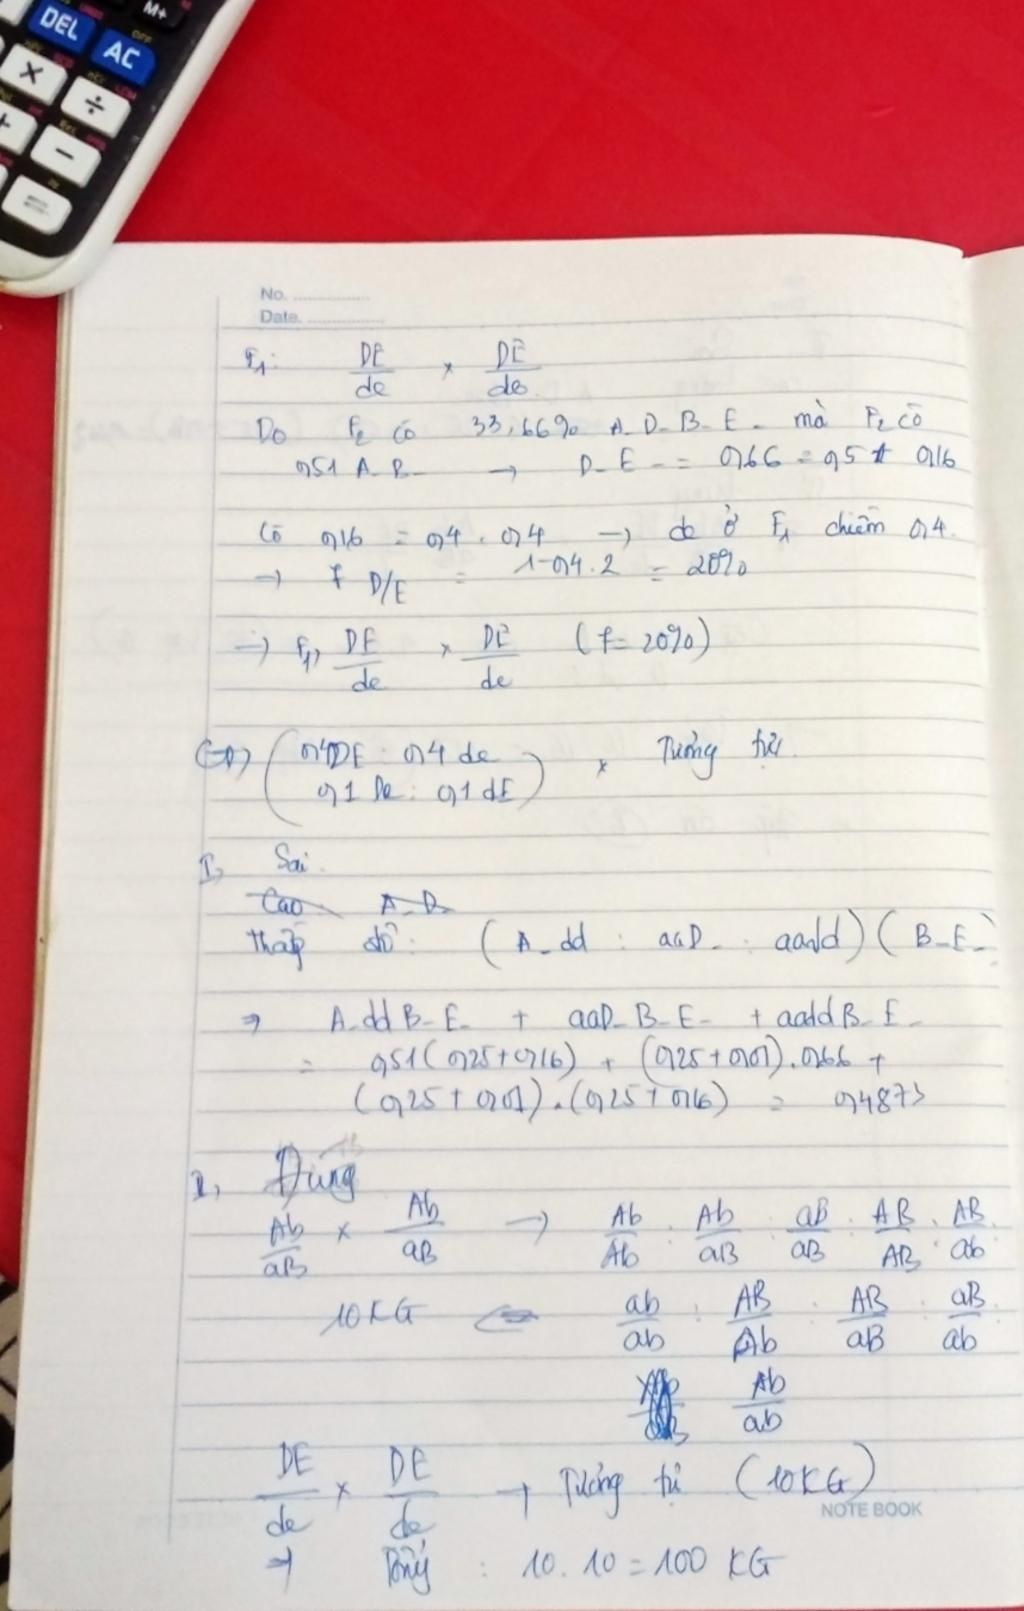 DEL
M+
AC
OFF
×
÷
+
−
=
No. ................
Date. ................
F₁: DE/de × DE/de
Do F₂ có 33,66% A_D_B_E_ mà F₂ có
0,51 A_B_ → D_E_ = 0,66 = 0,5 + 0,16
Có 0,16 = 0,4 . 0,4 → de ở F₁ chiếm 0,4.
→ f D/E = 1-0,4.2 = 20%
→ F₁, DE/de × DE/de (f= 20%)
(0,4DE : 0,4 de × Tương tự.
0,1 De : 0,1 dE)
I, Sai.
Cao A_D_
thấp đỏ: (A_dd : aaD_ : aadd) (B_E_)
→ A_ddB_E_ + aaD_B_E_ + aaddB_E_
= 0,51(0,25+0,16) + (0,25+0,01).0,66 +
(0,25+0,01).(0,25+0,16) = 0,4873
2, Đúng
Ab/aB × Ab/aB → Ab/Ab : Ab/aB : aB/aB : AB/AB : AB/ab :
10KG ab/ab : AB/Ab : AB/aB : aB/ab :
Ab/ab
DE/de × DE/de → Tương tự (10KG)
NOTE BOOK
→ : 10.10=100 KG